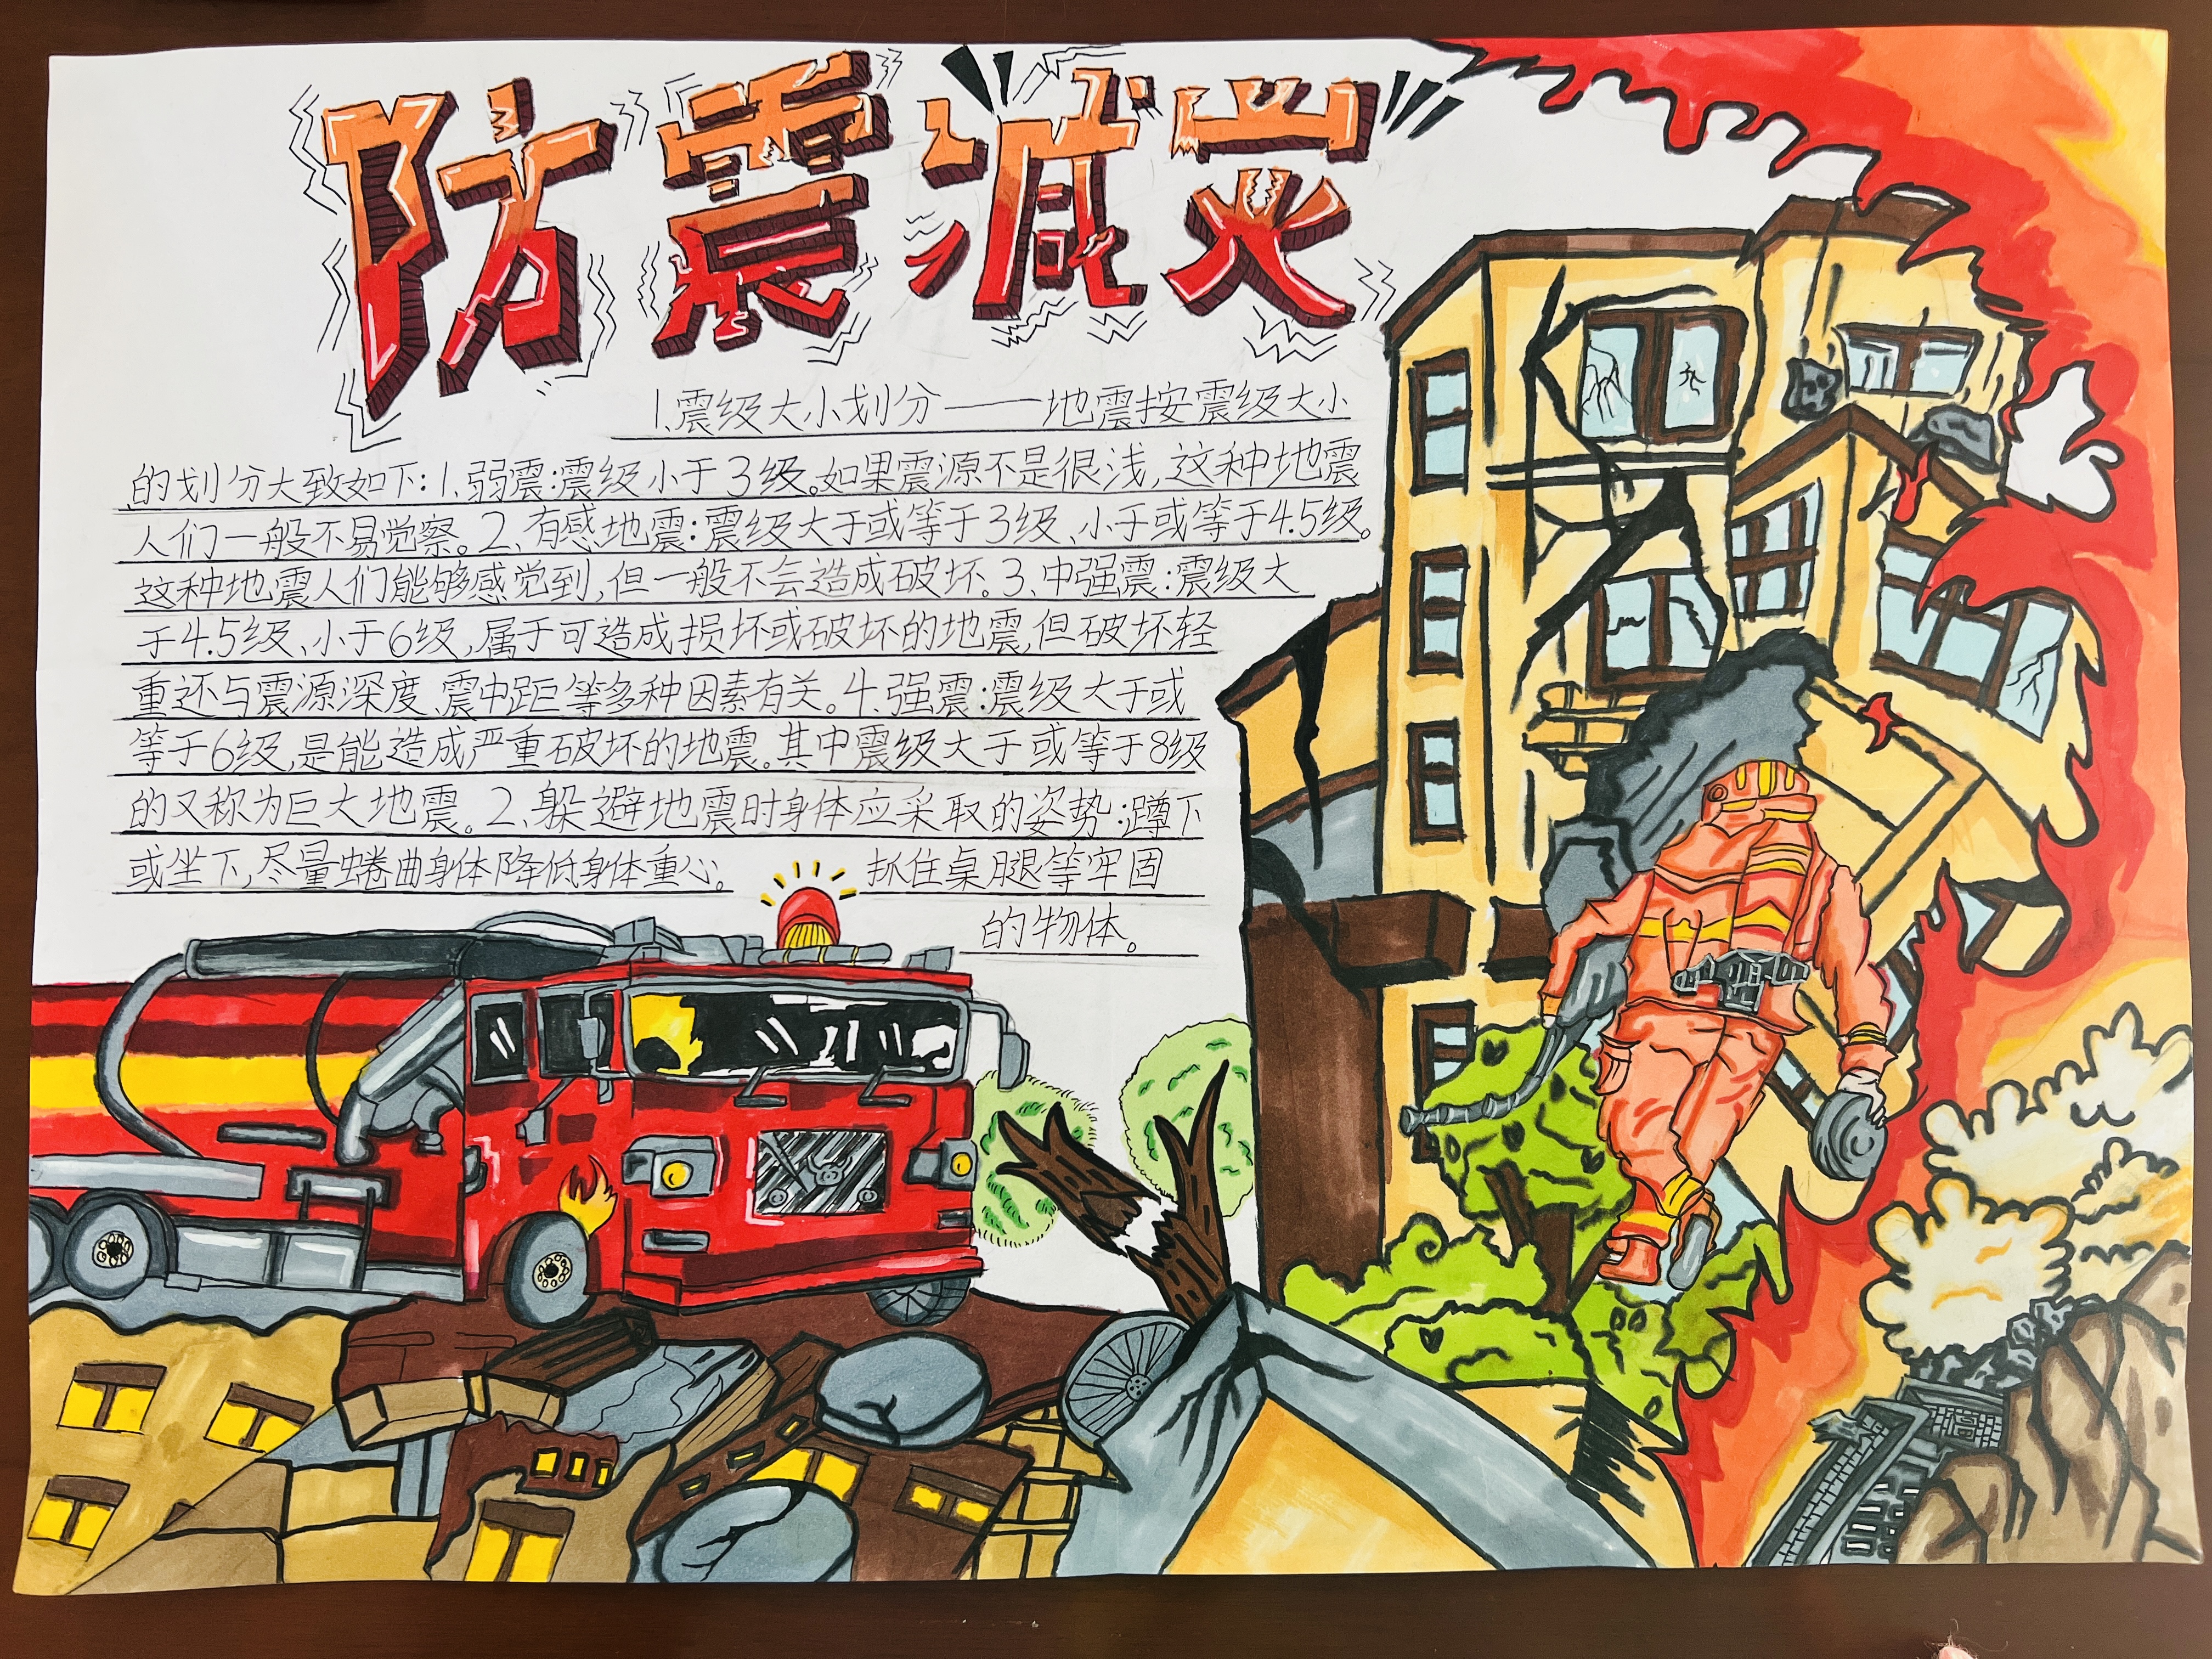 防震减灾
1.震级大小划分——地震按震级大小
的划分大致如下:1.弱震:震级小于3级。如果震源不是很浅,这种地震
人们一般不易觉察。2、有感地震:震级大于或等于3级、小于或等于4.5级。
这种地震人们能够感觉到,但一般不会造成破坏。3、中强震:震级大
于4.5级、小于6级,属于可造成损坏或破坏的地震,但破坏轻
重还与震源深度、震中距等多种因素有关。4.强震:震级大于或
等于6级,是能造成严重破坏的地震。其中震级大于或等于8级
的又称为巨大地震。2、躲避地震时身体应采取的姿势:蹲下
或坐下,尽量蜷曲身体降低身体重心。 抓住桌腿等牢固
的物体。